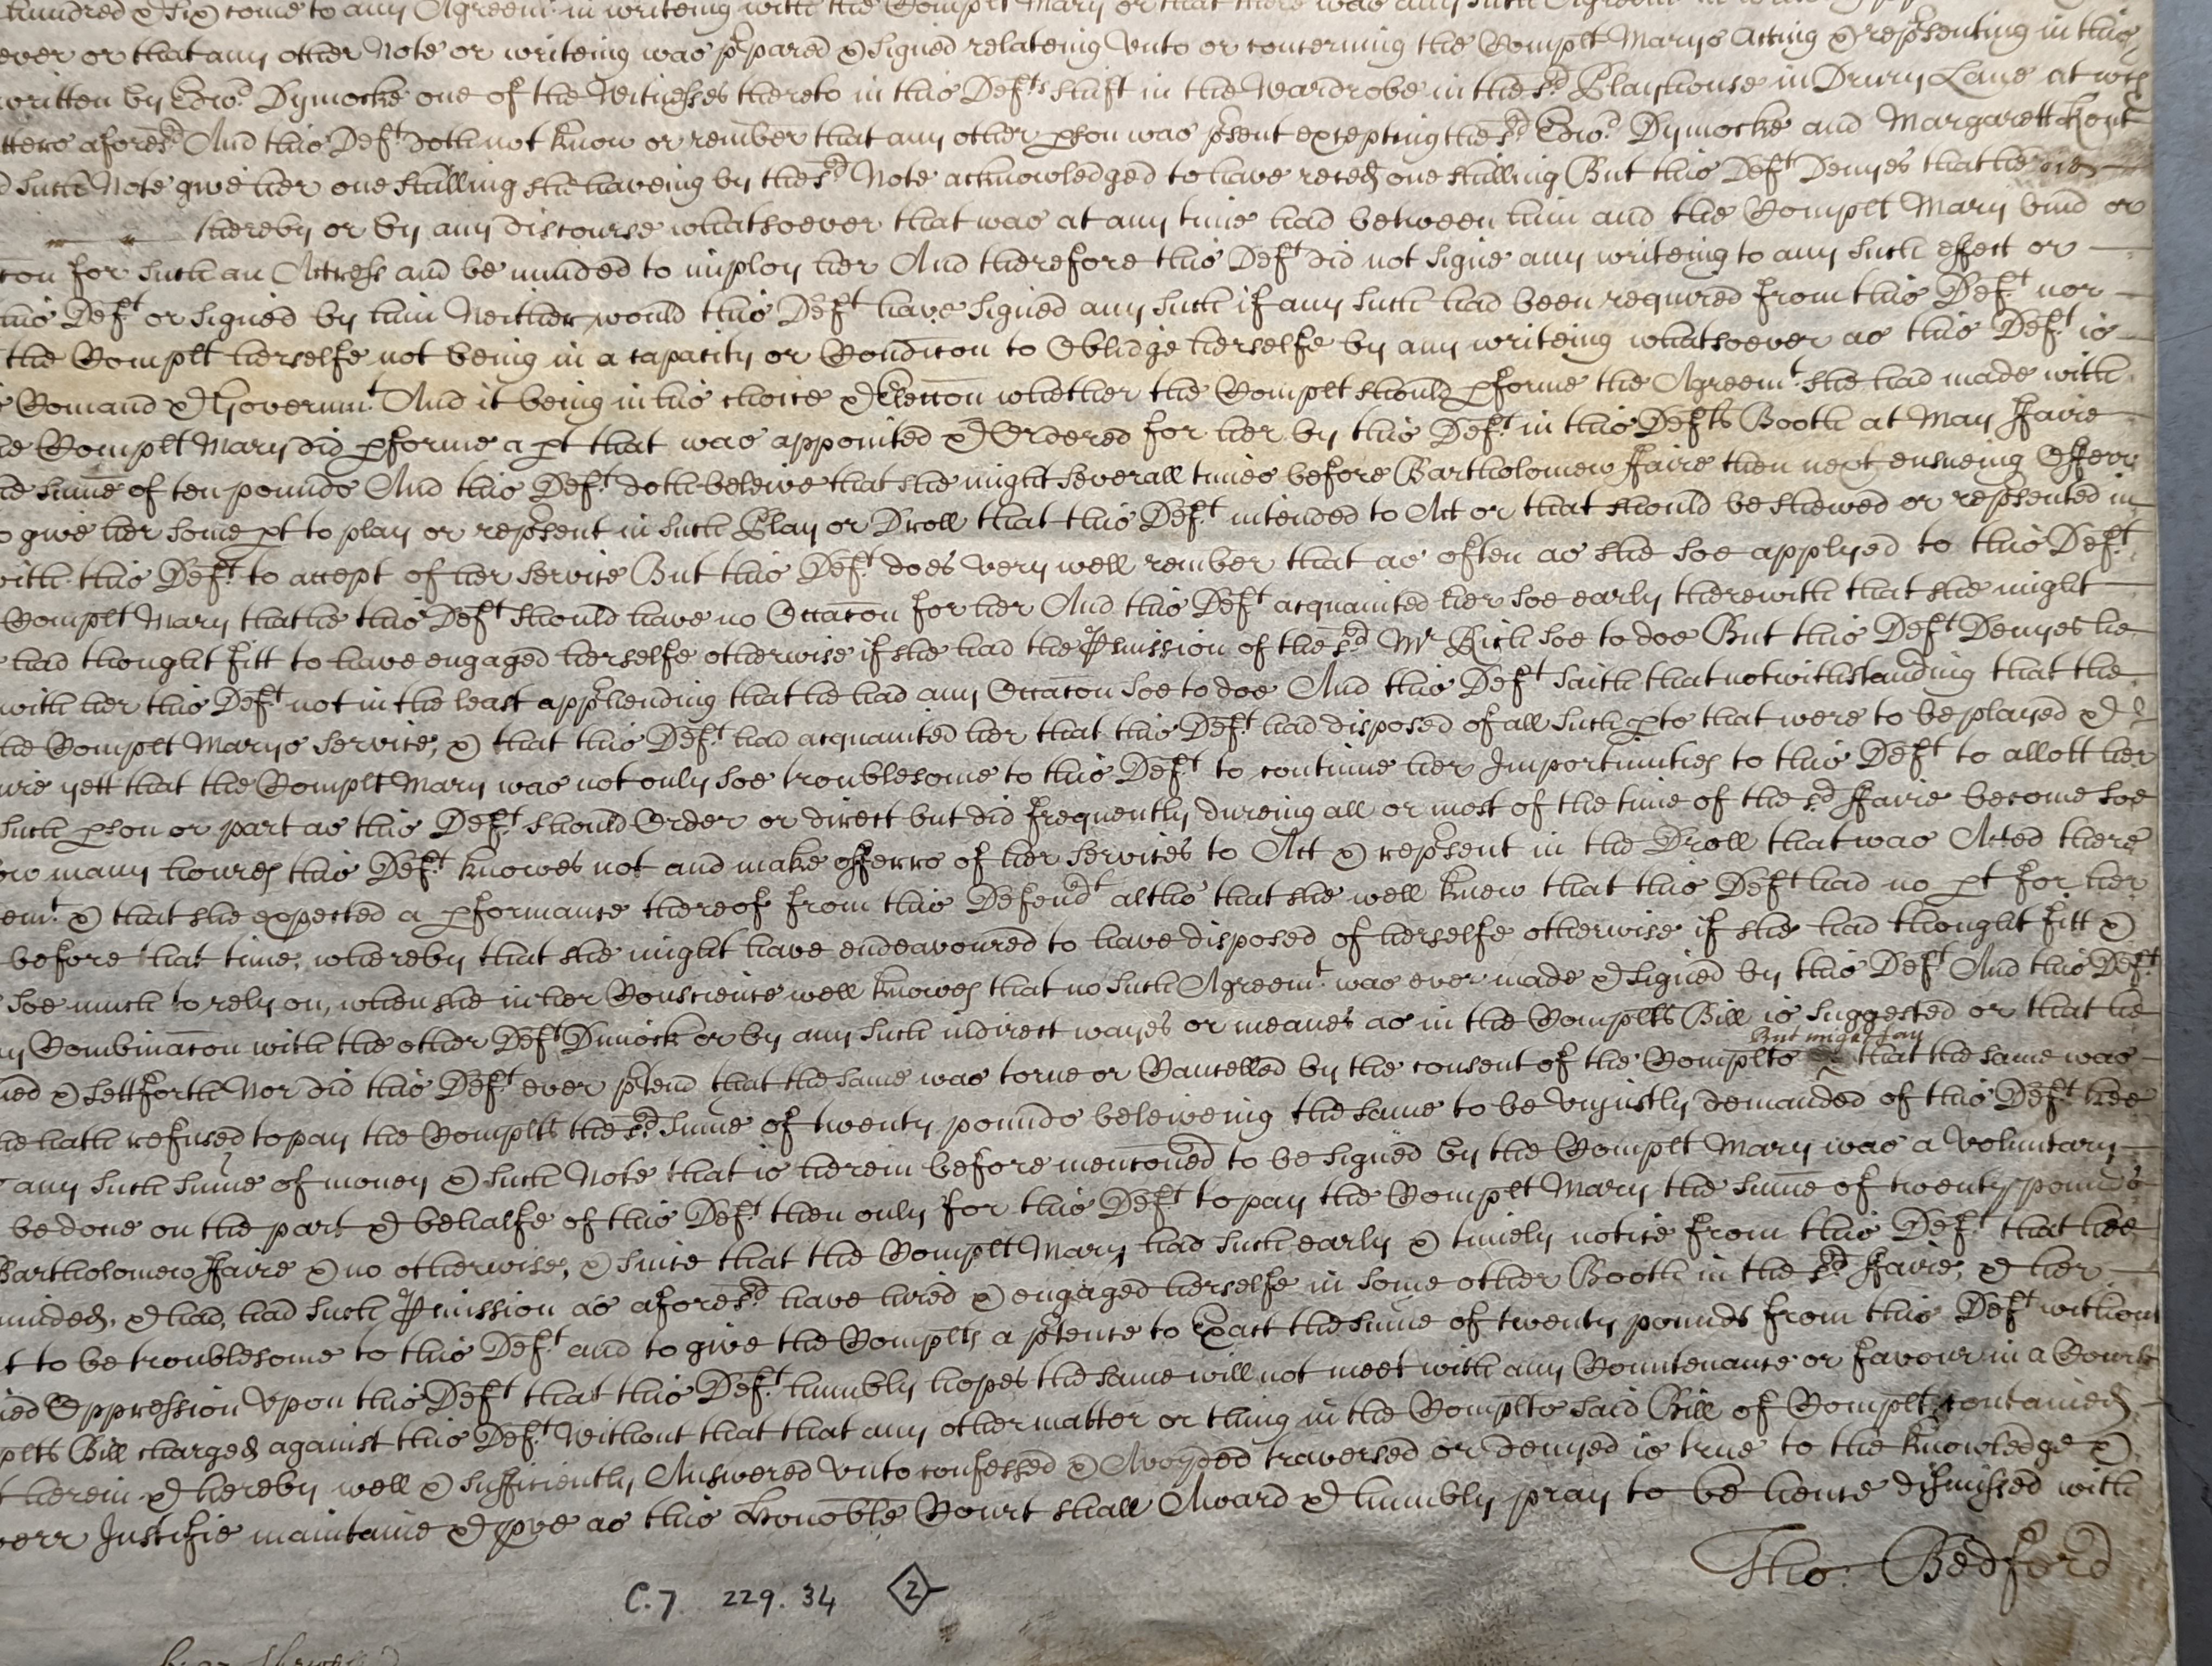 hundred & Six come to any Agreemt in writeing with the Complt Mary or that there was any such Agreemt in
ever or that any other Note or writeing was p'pared & Signed relateing Unto or concerning the Complt Marys Acting & rep'senting in this
written by Edwd Dymocke one of the Witnesses thereto in this Defts shift in the Wardrobe in the sd Playhouse in Drury Lane at wch
tters aforesd And this Deft doth not know or rember that any other pson was p'sent excepting the sd Edwd Dymocke and Margarett Kent
d such Note give her one shilling she haveing by the sd Note acknowledged to have reced one shilling But this Deft Denyes that he
thereby or by any discourse whatsoever that was at any time had between him and the Complt Mary bind or
con for such an Actress and be minded to imploy her And therefore this Deft did not Signe any writeing to any such effect or
this Deft or Signed by him Neither would this Deft have Signed any such if any such had been required from this Deft nor
the Complt herselfe not being in a capacity or Condicon to Oblidge herselfe by any writeing whatsoever as this Deft is
Comand & Governmt And it being in his choice & Eleccon whether the Complt should pforme the Agreemt she had made with
he Complt Mary did pforme a pt that was appointed & Ordered for her by this Deft in this Defts Booth at May ffaire
he sume of ten pounds And this Deft doth beleive that she might severall times before Bartholomew ffaire then next ensueing Offerr
o give her some pt to play or rep'sent in such Play or Droll that this Deft intended to Act or that should be shewed or rep'sented in
with this Deft to accept of her service But this Deft does very well rember that as often as she soe applyed to this Deft
Complt Mary that he this Deft should have no Occacon for her And this Deft acquainted her soe early therewith that she might
had thought fitt to have engaged herselfe otherwise if she had the Pmission of the sd Mr Rich soe to doe But this Deft Denyes he
with her this Deft not in the least app'hending that he had any Occacon soe to doe And this Deft saith that notwithstanding that the
he Complt Marys service, & that this Deft had acquainted her that this Deft had disposed of all such pts that were to be played &
ire yett that the Complt Mary was not only soe troublesome to this Deft to continue her Importunities to this Deft to allott her
such pson or part as this Deft should Order or direct but did frequently dureing all or most of the time of the sd ffaire become soe
ow many houres this Deft knowes not and make offerrs of her services to Act & rep'sent in the Droll that was Acted there
emt & that she expected a pformance thereof from this Defendt altho that she well knew that this Deft had no pt for her
before that time, whereby that she might have endeavoured to have disposed of herselfe otherwise if she had thought fitt &
soe much to rely on, when she in her Conscience well knowes that no such Agreemt was ever made & Signed by this Deft And this Deft
y Combinacon with the other Deft Dimock or by any such indirect wayes or meanes as in the Complts Bill is suggested or that he
But might say
ed & sett forth Nor did this Deft ever p'tend that the same was torne or Cancelled by the consent of the Complts that the same was
he hath refused to pay the Complts the sd sume of twenty pounds beleiveing the same to be Unjustly demanded of this Deft hee
any such sume of money & such Note that is herein before menconed to be signed by the Complt Mary was a Voluntary
be done on the part & behalfe of this Deft then only for this Deft to pay the Complt Mary the sume of twenty pounds
Bartholomew ffaire & no otherwise, & since that the Complt Mary had such early & timely notice from this Deft that hee
minded, & had, had such Pmission as aforesd have hired & engaged herselfe in some other Booth in the sd ffaire, & her
t to be troublesome to this Deft and to give the Complts a p'tence to Exact the sume of twenty pounds from this Deft without
ed Oppression Upon this Deft that this Deft humbly hopes the same will not meet with any Countenance or favour in a Court
plts Bill charged against this Deft Without that that any other matter or thing in the Complts said Bill of Complt contained
t herein & hereby well & sufficiently Answered Unto confessed & Avoyded traversed or denyed is true to the knowledge &
verr Justifie maintaine & prove as this Honoble Court shall Award & humbly pray to be hence dismissed with
Tho: Bedford
C.7 229. 34 2